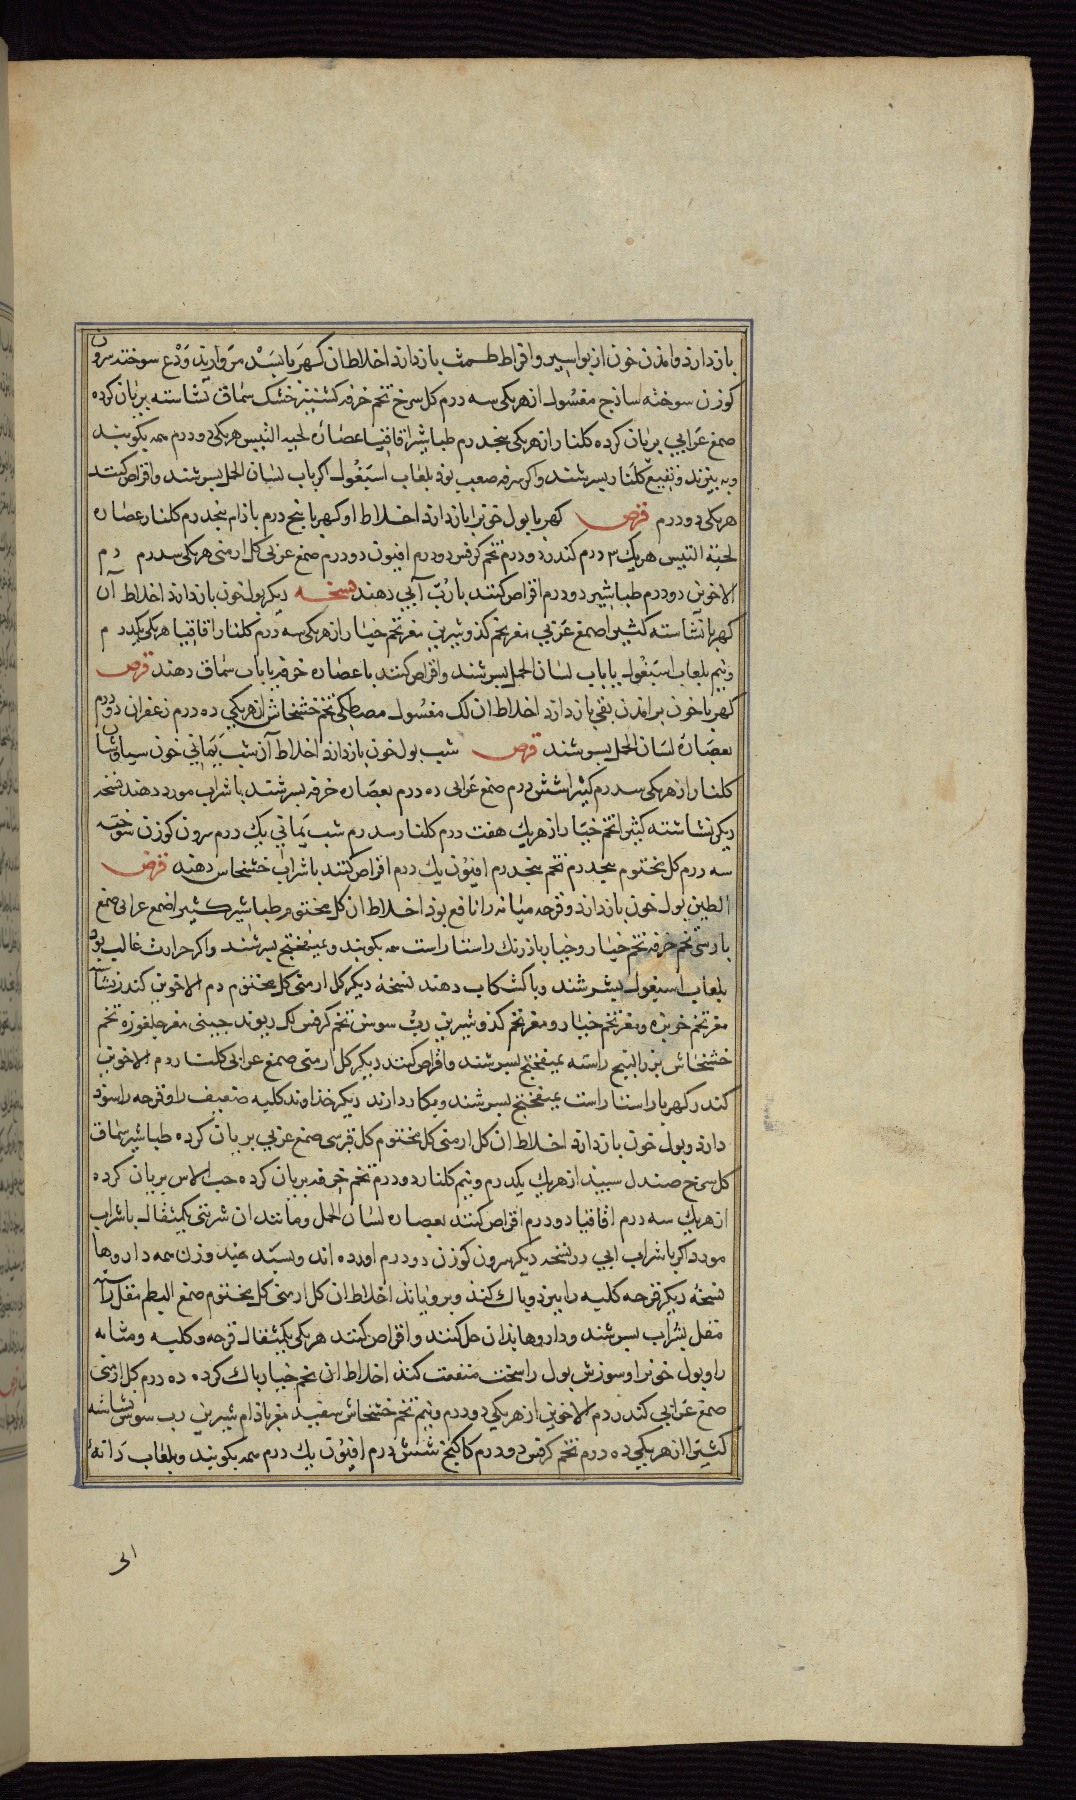 بازدارد و امدن خون از بواسیر و افراط طمث بازدارد اخلاط ان کهربا بسد مروارید ودع سوخته سرون
کوزن سوخته ساذج مغسول از هریکی سه درم کل سرخ تخم خرفه کشنیز خشک سماق نشاسته بریان کرده
صمغ عرابی بریان کرده کلنار از هریکی پنجدرم طباشیر اقاقیا عصاره لحیه التیس هریکی دو درم همه بکوبند
و به بیزند و بنقیع کلنار بسرشند و اکر سرفه صعب بوذ بلعاب اسبغول اکر باب لسان الحمل بسرشند و اقراص کنند
هریکی دو درم قرص کهربا بول خونرا بازدارد اخلاط او کهربا پنج درم باذام پنجدرم کلنار عصاره
لحیة التیس هریک ۳ درم کندر دو درم تخم کرفس دو درم افیون دو درم صمغ عربی کل ارمنی هریکی سدرم دم
الاخوین دو درم طباشیر دو درم اقراص کنند با رب آبی دهند نسخه دیکر بول خون بازدارد اخلاط آن
کهربا نشاسته کثیرا صمغ عربی مغز تخم کذو شیرین مغز تخم خیار از هریکی سه درم کلنار اقاقیا هریکی یکدرم
و نیم بلعاب اسبغول یا باب لسان الحمل بسرشند و اقراص کنند با عصاره خرفه یا باب سماق دهند قرص
کهربا خون برامذن بقی بازدارد اخلاط ان لک مغسول مصطکی تخم خشخاش از هریکی ده درم زعفران دو درم
بعصاره لسان الحمل بسرشند قرص شب بول خون بازدارد اخلاط آن شب یمانی خون سیاوشان
کلنار از هریکی سدرم کثیرا شش درم صمغ عرابی ده درم بعصاره خرفه بسرشند با شراب مورد دهند نسخه
دیکر نشاسته کثیرا تخم خیار از هریک هفت درم کلنار سدرم شب یمانی یک درم سرون کوزن سوخته
سه درم کل مختوم پنجدرم تخم پنجدرم افیون یک درم اقراص کنند با شراب خشخاش دهند قرص
الطین بول خون بازدارد و قرحه مثانه را نافع بوذ اخلاط ان کل مختوم طباشیر کثیرا صمغ عرابی صمغ
پارسی تخم خرفه تخم خیار و خیار باذرنک راستا راست همه بکوبند و بمیفختج بسرشند و اکر حرارت غالب بود
بلعاب اسبغول بسرشند و با کشکاب دهند نسخه دیکر کل ارمنی کل مختوم دم الاخوین کندر نشاسته
مغز تخم خربزه و مغز تخم خیار و مغز تخم کذو شیرین رب سوس تخم کرفس لک ریوند جینی مغز جلغوزه تخم
خشخاش بزر البنج راسته بمیفختج بسرشند و اقراص کنند دیکر کل ارمنی صمغ عرابی کلنار دم الاخوین
کندر کهربا راستا راست بمیفختج بسرشند و بکار دارند دیکر خذاوند کلیه ضعیف را و قرحه را سوذ
دارد و بول خون بازدارد اخلاط ان کل ارمنی کل مختوم کل قبرسی صمغ عربی بریان کرده طباشیر سماق
کل سرخ صندل سبید از هریک یکدرم و نیم کلنار دو درم تخم خرفه بریان کرده حب الاس بریان کرده
از هریک سه درم اقاقیا دو درم اقراص کنند بعصاره لسان الحمل و مانند ان شربتی یکمثقال با شراب
مورد اکر با شراب ابی در نسخه دیکر سرون کوزن دو درم اورده اند و بسد نیمه وزن همه داروها
نسخه دیکر قرحه کلیه را ببرذ و پاک کنذ و برویاند اخلاط ان کل ارمنی کل مختوم صمغ البطم مقل راسته
مقل بشراب بسرشند و داروها بذان حل کنند و اقراص کنند هریکی یکمثقال قرحه و کلیه و مثانه
را و بول خونرا و سوزش بول را سخت منفعت کنذ اخلاط ان تخم خیار پاک کرده ده درم کل ارمنی
صمغ عرابی کندر دم الاخوین از هریکی دو درم و نیم تخم خشخاش سفید مغز باذام شیرین رب سوس نشاسته
کثیرا از هریکی ده درم تخم کرفس دو درم کاکنج شش درم افیون یک درم همه بکوبند و بلعاب دانهٔ